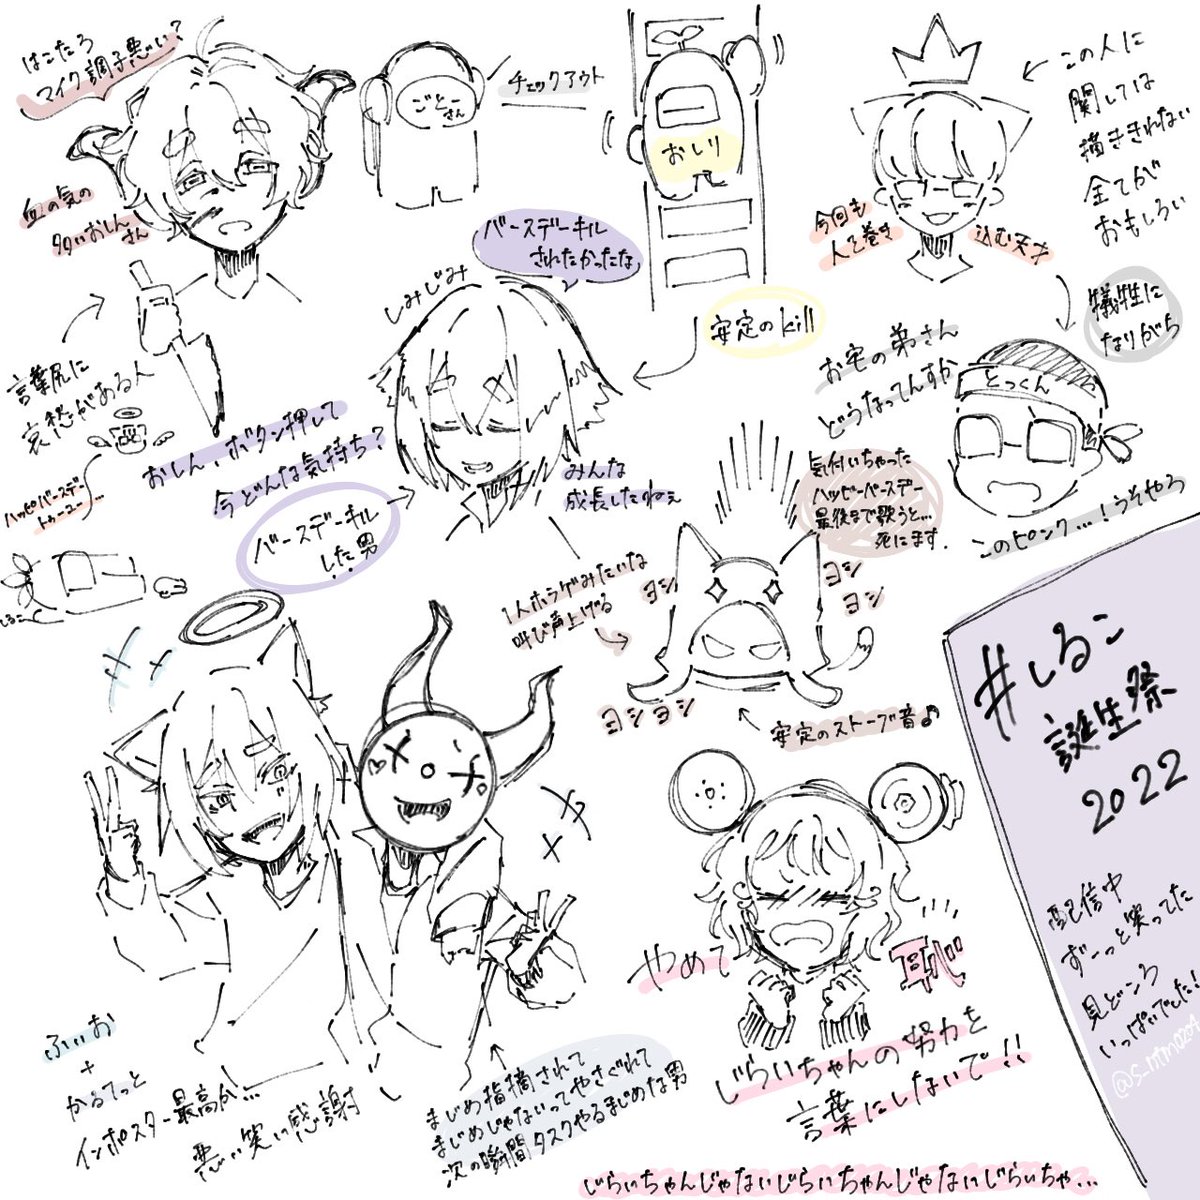 はこたろ
マイク調子悪い?
血の気の
多いおしん
さん
言葉尻に
哀愁がある人
ごとー
さん
チェックアウト
おしり
安定のkill
バースデーキル
されたかったな
しみじみ
おしん、ボタン押して
今どんな気持ち?
バースデーキル
した男
みんな
成長したねぇ
この人に
関しては
描ききれない
全てが
おもしろい
今回も
人を巻き
込む天才
犠牲に
なりがち
お宅の弟さん
どうなってんすか
とっくん
このピンク…!うそやろ
気付いちゃった
ハッピーバースデー
最後まで歌うと…
死にます.
ハッピバースデー
トゥーユー…
しるこ
1人ホラゲみたいな
叫び声上げる
ヨシ
ヨシ
ヨシ
ヨシヨシ
安定のストーブ音♪
#しるこ
誕生祭
2022
配信中
ずーっと笑ってた
見どころ
いっぱいでした!
ふぃお
+
かるてっと
インポスター最高か…
悪い笑い感謝
まじめ指摘されて
まじめじゃないってやさぐれて
次の瞬間タスクやるまじめな男
やめて
恥
じらいちゃんの努力を
言葉にしないで!!
じらいちゃんじゃないじらいちゃんじゃないじらいちゃ…